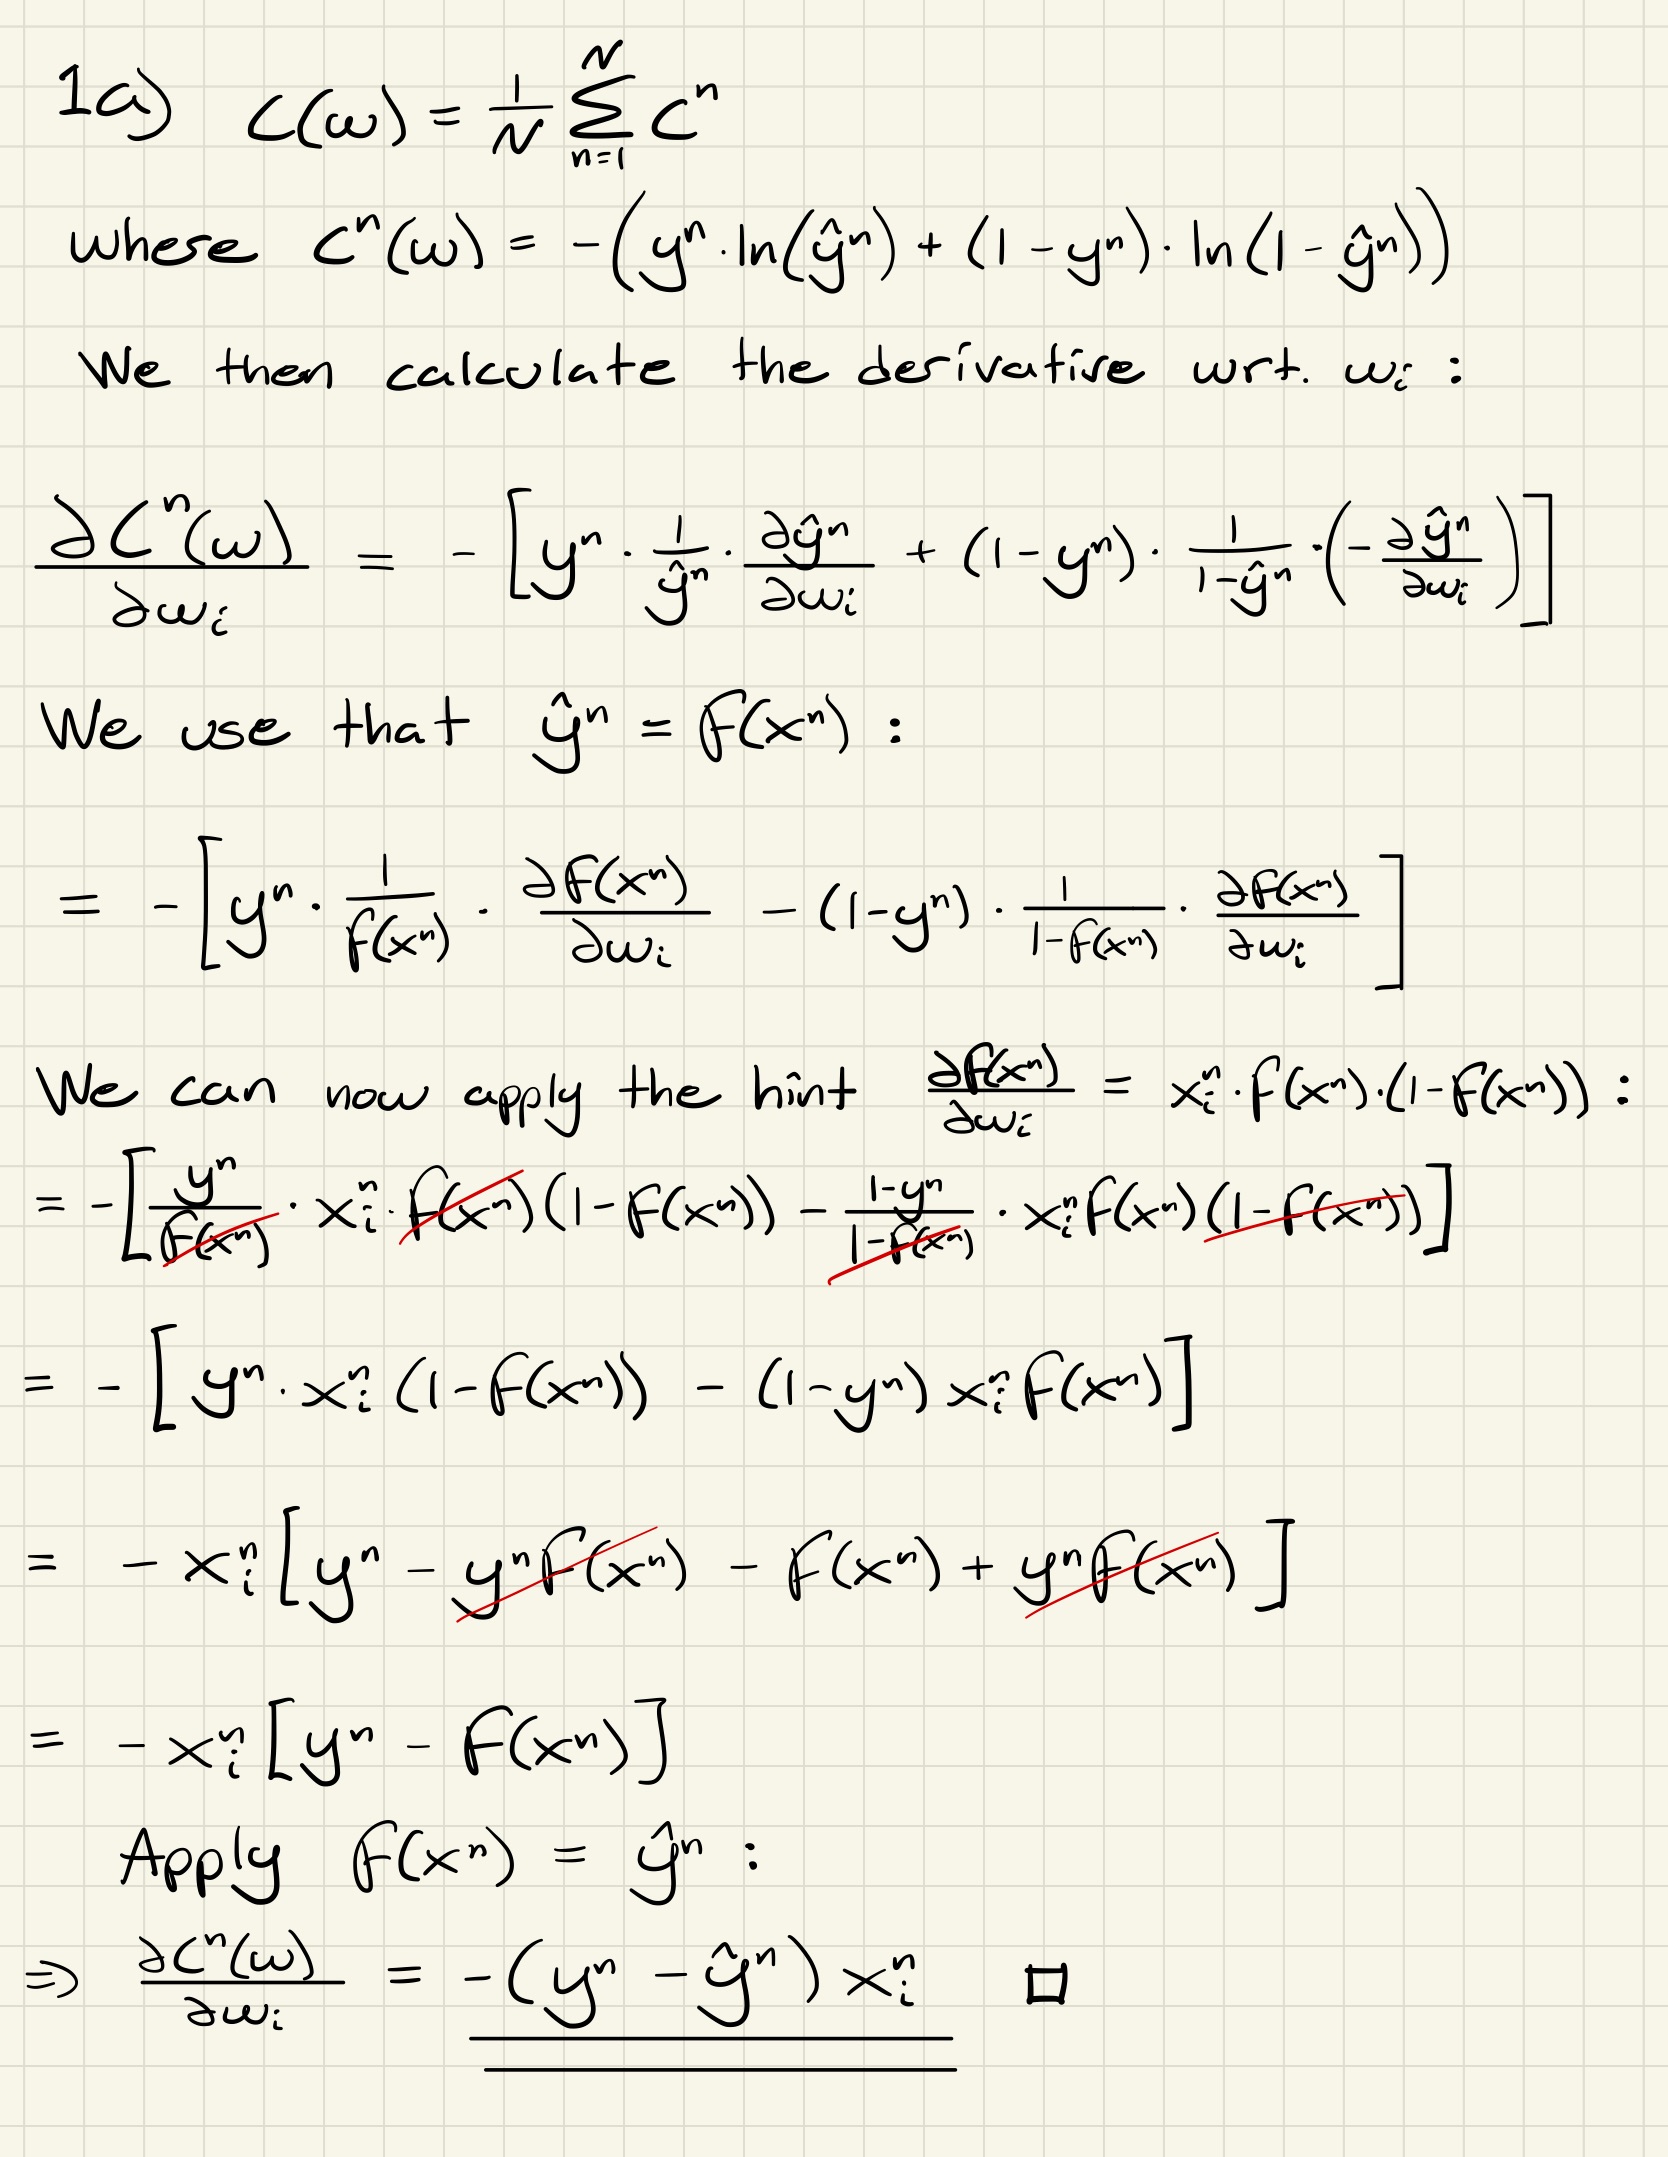 1a) C(ω) = 1/N Σ_{n=1}^{N} C^n
where C^n(ω) = -(y^n · ln(ŷ^n) + (1 - y^n) · ln(1 - ŷ^n))
We then calculate the derivative wrt. ω_i :
∂C^n(ω)/∂ω_i = - [y^n · 1/ŷ^n · ∂ŷ^n/∂ω_i + (1 - y^n) · 1/(1-ŷ^n) · (- ∂ŷ^n/∂ω_i)]
We use that ŷ^n = f(x^n) :
= - [y^n · 1/f(x^n) · ∂f(x^n)/∂ω_i - (1-y^n) · 1/(1-f(x^n)) · ∂f(x^n)/∂ω_i]
We can now apply the hint ∂f(x^n)/∂ω_i = x_i^n · f(x^n) · (1-f(x^n)) :
= - [y^n/f(x^n) · x_i^n · f(x^n) (1-f(x^n)) - (1-y^n)/(1-f(x^n)) · x_i^n f(x^n) (1-f(x^n))]
= - [y^n · x_i^n (1-f(x^n)) - (1-y^n) x_i^n f(x^n)]
= - x_i^n [y^n - y^n f(x^n) - f(x^n) + y^n f(x^n)]
= - x_i^n [y^n - f(x^n)]
Apply f(x^n) = ŷ^n :
⇒ ∂C^n(ω)/∂ω_i = -(y^n - ŷ^n) x_i^n □